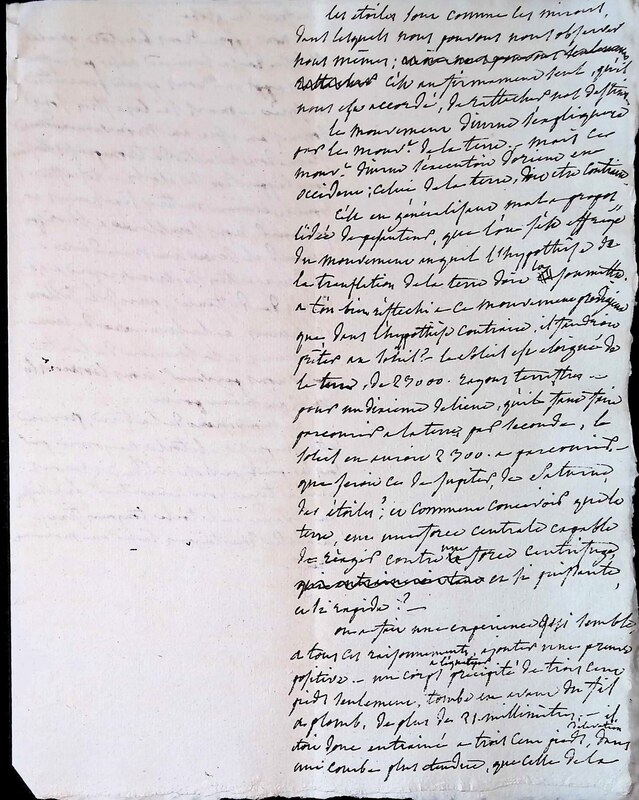 les étoiles sont comme les miroirs,
dans lesquels nous pouvons nous observer
nous mêmes;
c'est au firmament seul, qu'il
nous est accordé, de rattacher nos destins.
le mouvement diurne s'explique
par le mouvt. de la terre. - mais ce
mouvt. diurne s'exécute d'orient en
occident; celui de la terre, doit être contraire.
C'est en généralisant mal a propos
l'idée de pesanteur, que l'on s'est effrayé
du mouvement auquel l'hypothèse de
la translation de la terre doit la soumettre.
a t'on bien réfléchi a ce mouvement prodigieux
que dans l'hypothèse contraire, il faudroit
prêter au soleil? - le soleil est eloigné de
la terre, de 23000. rayons terrestres -
pour un dixieme de lieue, qu'il faut faire
parcourir a la terre par seconde, le
soleil en auroit 2300. a parcourir. -
que seroit ce de jupiter, de Saturne,
des étoiles? et comment concevoir que la
terre, eut une force centrale capable
de réagir contre une force centrifuge,
et si puissante,
et si rapide? -
on a fait une expérience qui semble
a tous ces raisonnements, ajouter une preuve
positive. - un corps précipité de trois cent
pieds seulement, tombe en avant du fil
a plomb, de plus de 21 millimetres. - il
étoit donc entrainé a trois cent pieds, d'elevation dans
une courbe plus étendue, que celle de la